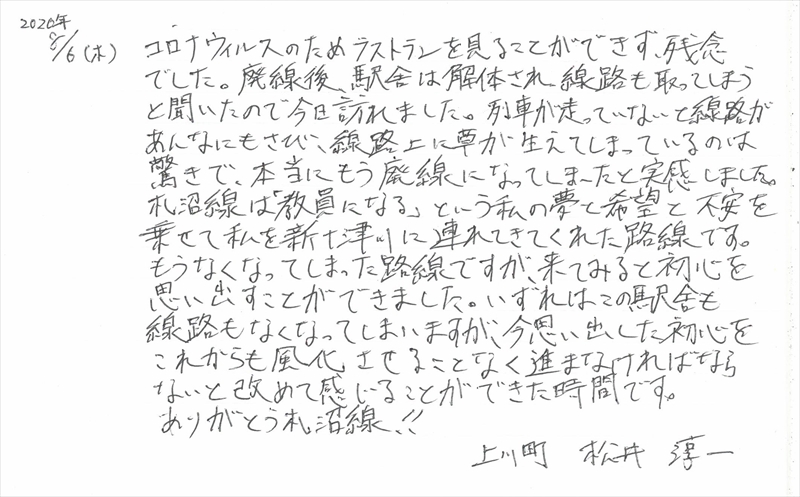 2020年
8/6(木)
コロナウィルスのためラストランを見ることができず、残念
でした。廃線後、駅舎は解体され、線路も取ってしまう
と聞いたので今日訪れました。列車が走っていないと線路が
あんなにもさび、線路上に草が生えてしまっているのは
驚きで、本当にもう廃線になってしまったと実感しました。
札沼線は「教員になる」という私の夢と希望と不安を
乗せて私を新十津川に連れてきてくれた路線です。
もうなくなってしまった路線ですが、来てみると初心を
思い出すことができました。いずれはこの駅舎も
線路もなくなってしまいますが、今思い出した初心を
これからも風化させることなく進まなければなら
ないと改めて感じることができた時間です。
ありがとう札沼線!!
上川町 松井 淳一